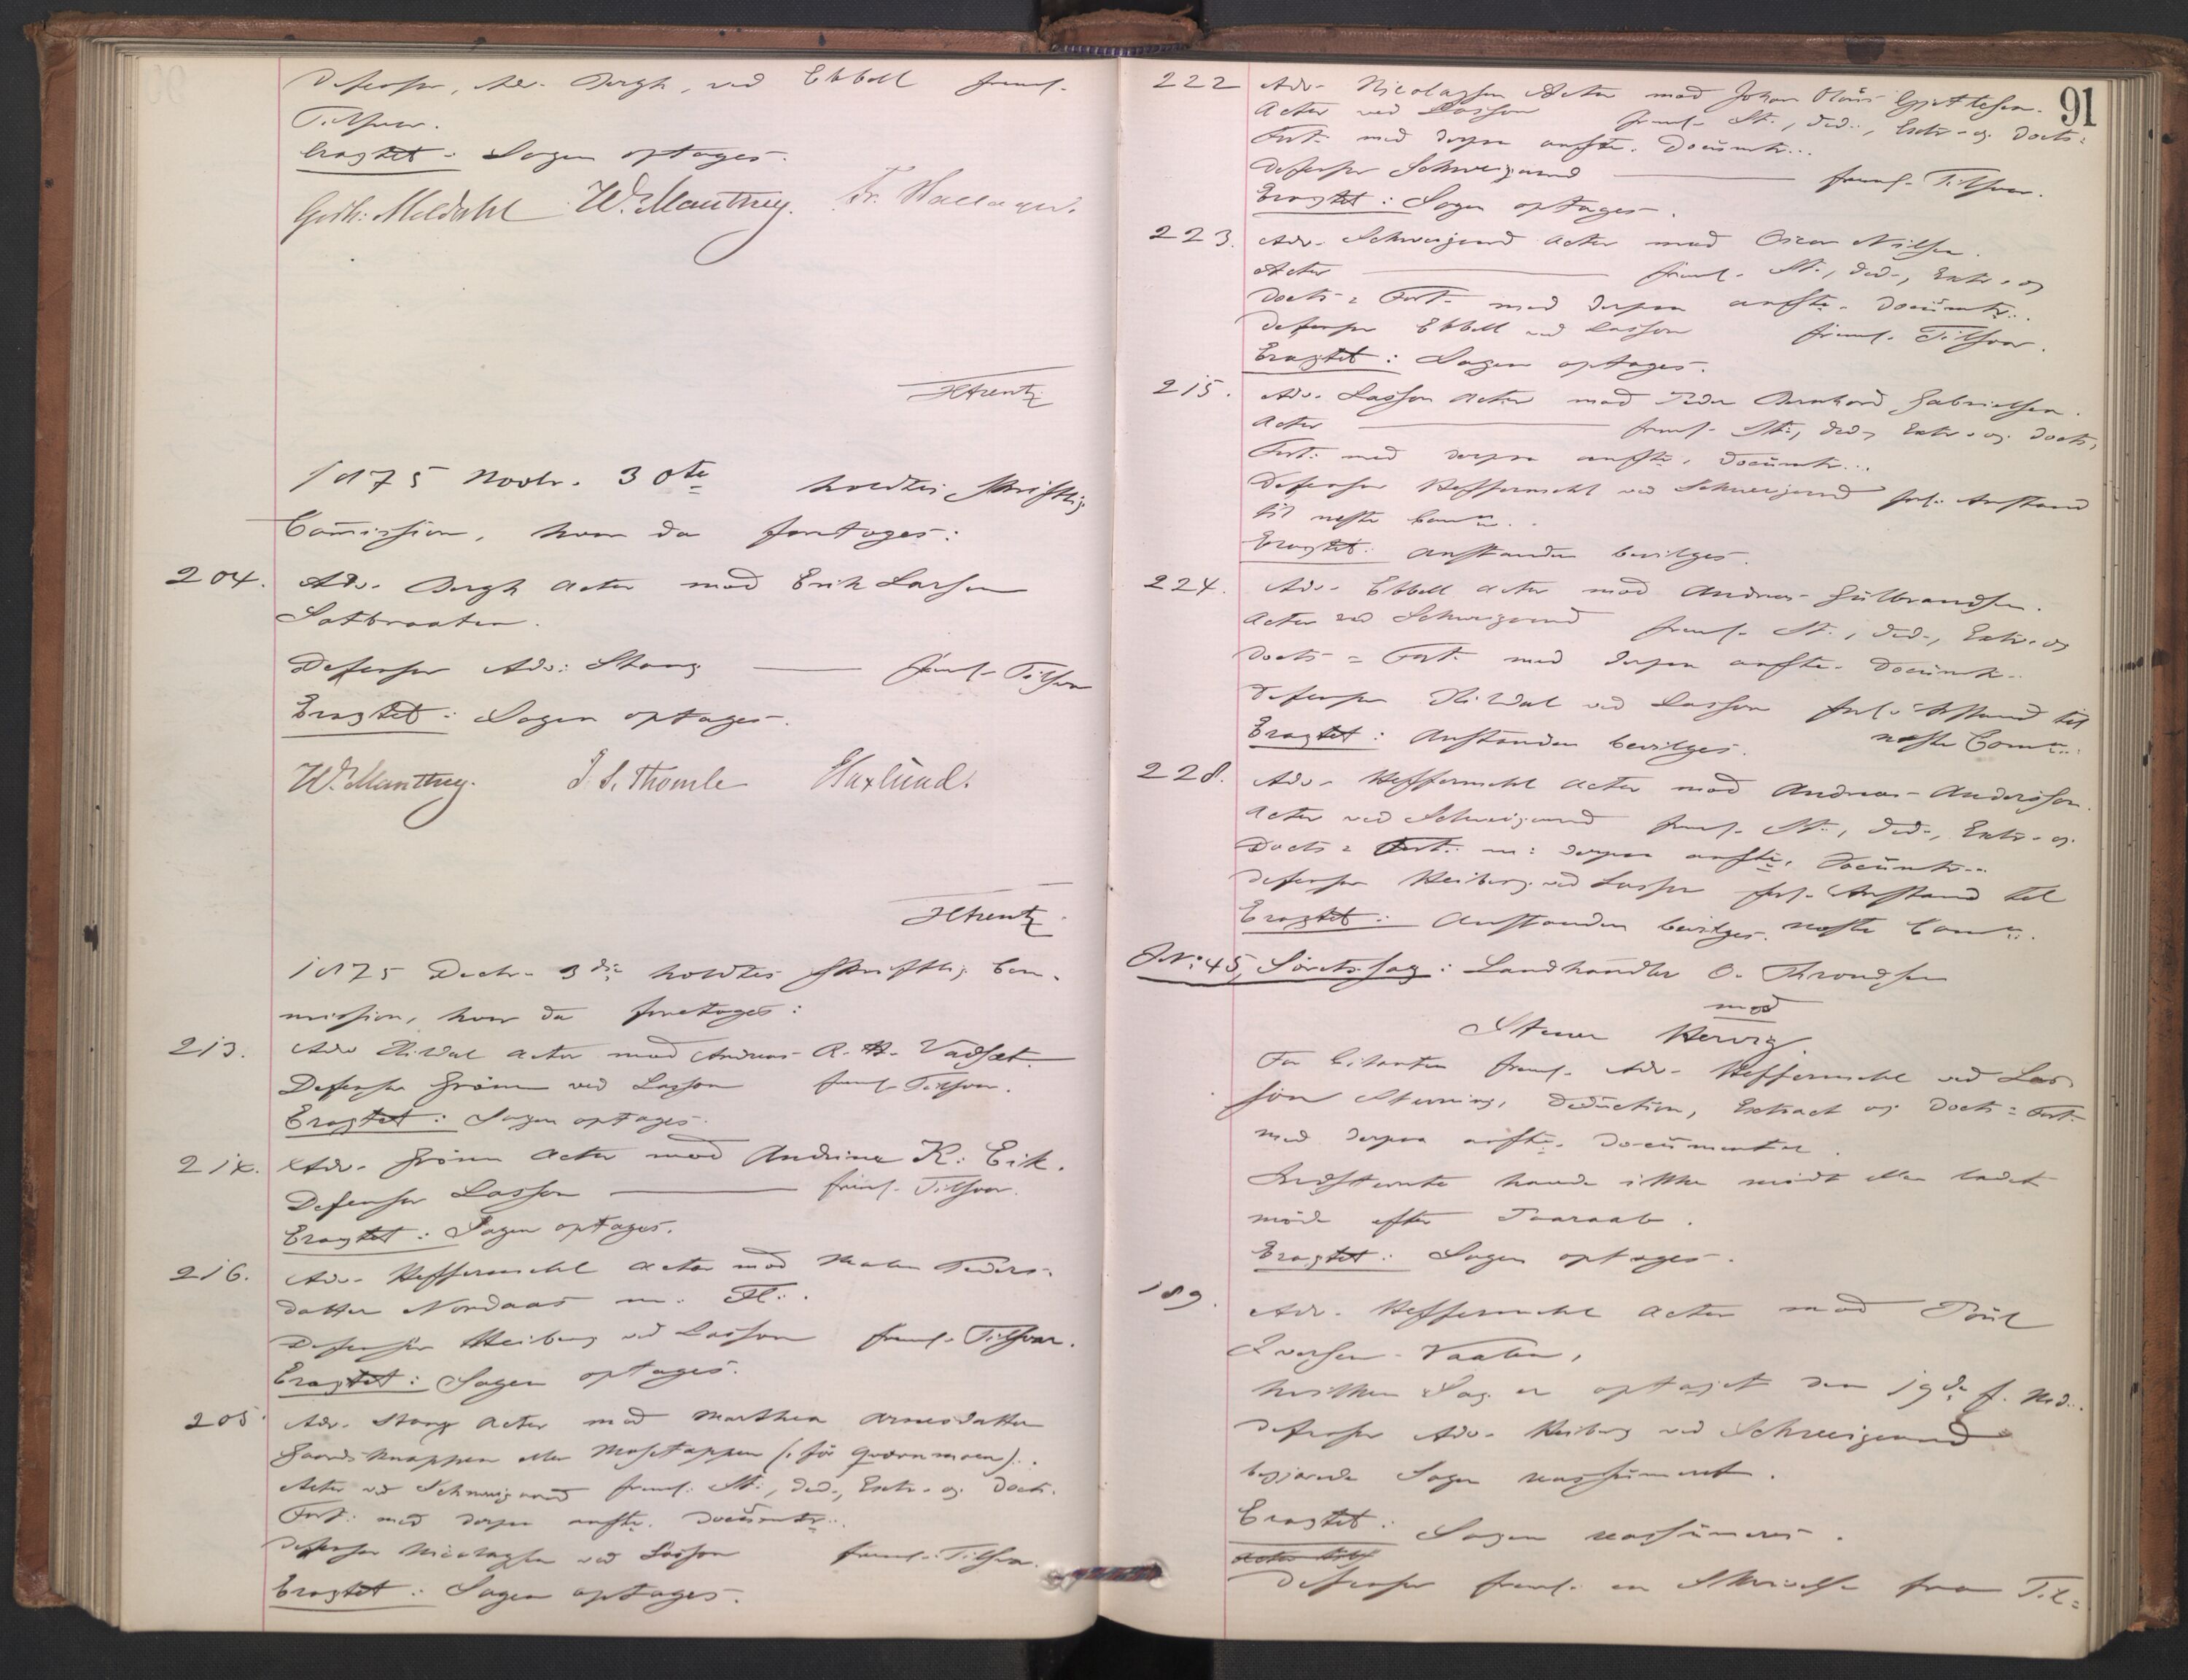 Defensor, Adv. Bergh, ved Ebbell freml.
Tilsvar.
Eragtet: Sagen optages.
Goth: Meldahl W. Manthey. Fr. Hallager.
HArentz
1875 Novbr. 30te holdtes skriftlig
Commission, hvor da foretoges:
204. Adv. Bergh Actor mod Erik Larsen
Satbraaten.
Defensor Adv: Stang freml. Tilsvar
Eragtet: Sagen optages.
W. Manthey. J. S. Thomle Haxlund.
HArentz
1875 Decbr. 3die holdtes skriftlig Com-
mission, hvor da foretoges:
213. Adv. Hirdal Actor mod Andreas A. H. Vadset.
Defensor Grönn ved Lasson freml. Tilsvar.
Eragtet: Sagen optages.
214. Adv. Grönn Actor mod Andrine K: Eik.
Defensor Lasson freml. Tilsvar.
Eragtet: Sagen optages.
216. Adv. Heffermehl Actor mod Malen Peders-
datter Nordaas m. Fl:.
Defensor Heiberg ved Lasson freml. Tilsvar.
Eragtet: Sagen optages.
205. Adv. Stang Actor mod Marthea Arnesdatter
Gaardsknappen eller Mosetappen (: för Qværnmoen).
Actor ved Schweigaard freml. St:, Ded., Extr. og Doct.
Fort: med derpaa anfte. Documtr..
Defensor Nicolaysen ved Lasson freml. Tilsvar.
Eragtet: Sagen optages.
91
222 Adv. Nicolaysen Actor mod Johan Olaus Gjertlesen.
Actor ved Lasson freml. St., Ded., Extr. og Docts=
Fort. med derpaa anfte. Documtr..
Defensor Schweigaard freml. Tilsvar.
Eragtet: Sagen optages.
223. Adv. Schweigaard Actor mod Oscar Nilsen.
Actor freml. St., Ded., Extr. og
Docts= Fort. med derpaa anfte. Documtr..
Defensor Ebbell ved Lasson freml. Tilsvar.
Eragtet: Sagen optages.
215. Adv. Lasson Actor mod Peder Bernhard Gabrielsen.
Actor freml. St:, Ded., Extr. og Docts=
Fort: med derpaa anfte. Documtr..
Defensor Heffermehl ved Schweigaard forl. Anstand
til neste Comm..
Eragtet: Anstanden bevilges.
224. Adv. Ebbell Actor mod Andreas Gulbrandsen.
Actor ved Schweigaard freml. St., Ded., Extr. og
Docts= Fort. med derpaa anfte. Documtr.
Defensor Hirdal ved Lasson forl. Anstand til
neste Comm..
Eragtet: Anstanden bevilges.
228. Adv. Heffermehl Actor mod Andreas Andersson.
Actor ved Schweigaard freml. St., Ded., Extr. og
Docts= Fort: m: derpaa anfte. Documtr..
Defensor Heiberg ved Lasson forl. Anstand til
neste Comm..
Eragtet: Anstanden bevilges.
J. N: 45, Söretssag: Landhandler O. Throndsen
mod
Stener Hervig.
For Citanten freml. Adv. Heffermehl ved Las-
son Stevning, Deduction, Extract og Docts= Fort.
med derpaa anfte. Documenter.
Indstevnte havde ikke mödt eller ladet
möde efter Paaraab.
Eragtet: Sagen optages.
189. Adv. Heffermehl Actor mod Poul
Iversen Vaalen,
hvilken Sag er optaget den 19de f. Md..
Defensor Adv. Heiberg ved Schweigaard
begjærede Sagen reassumeret.
Eragtet: Sagen reassumeres.
Defensor freml. en Skrivelse fra Til=